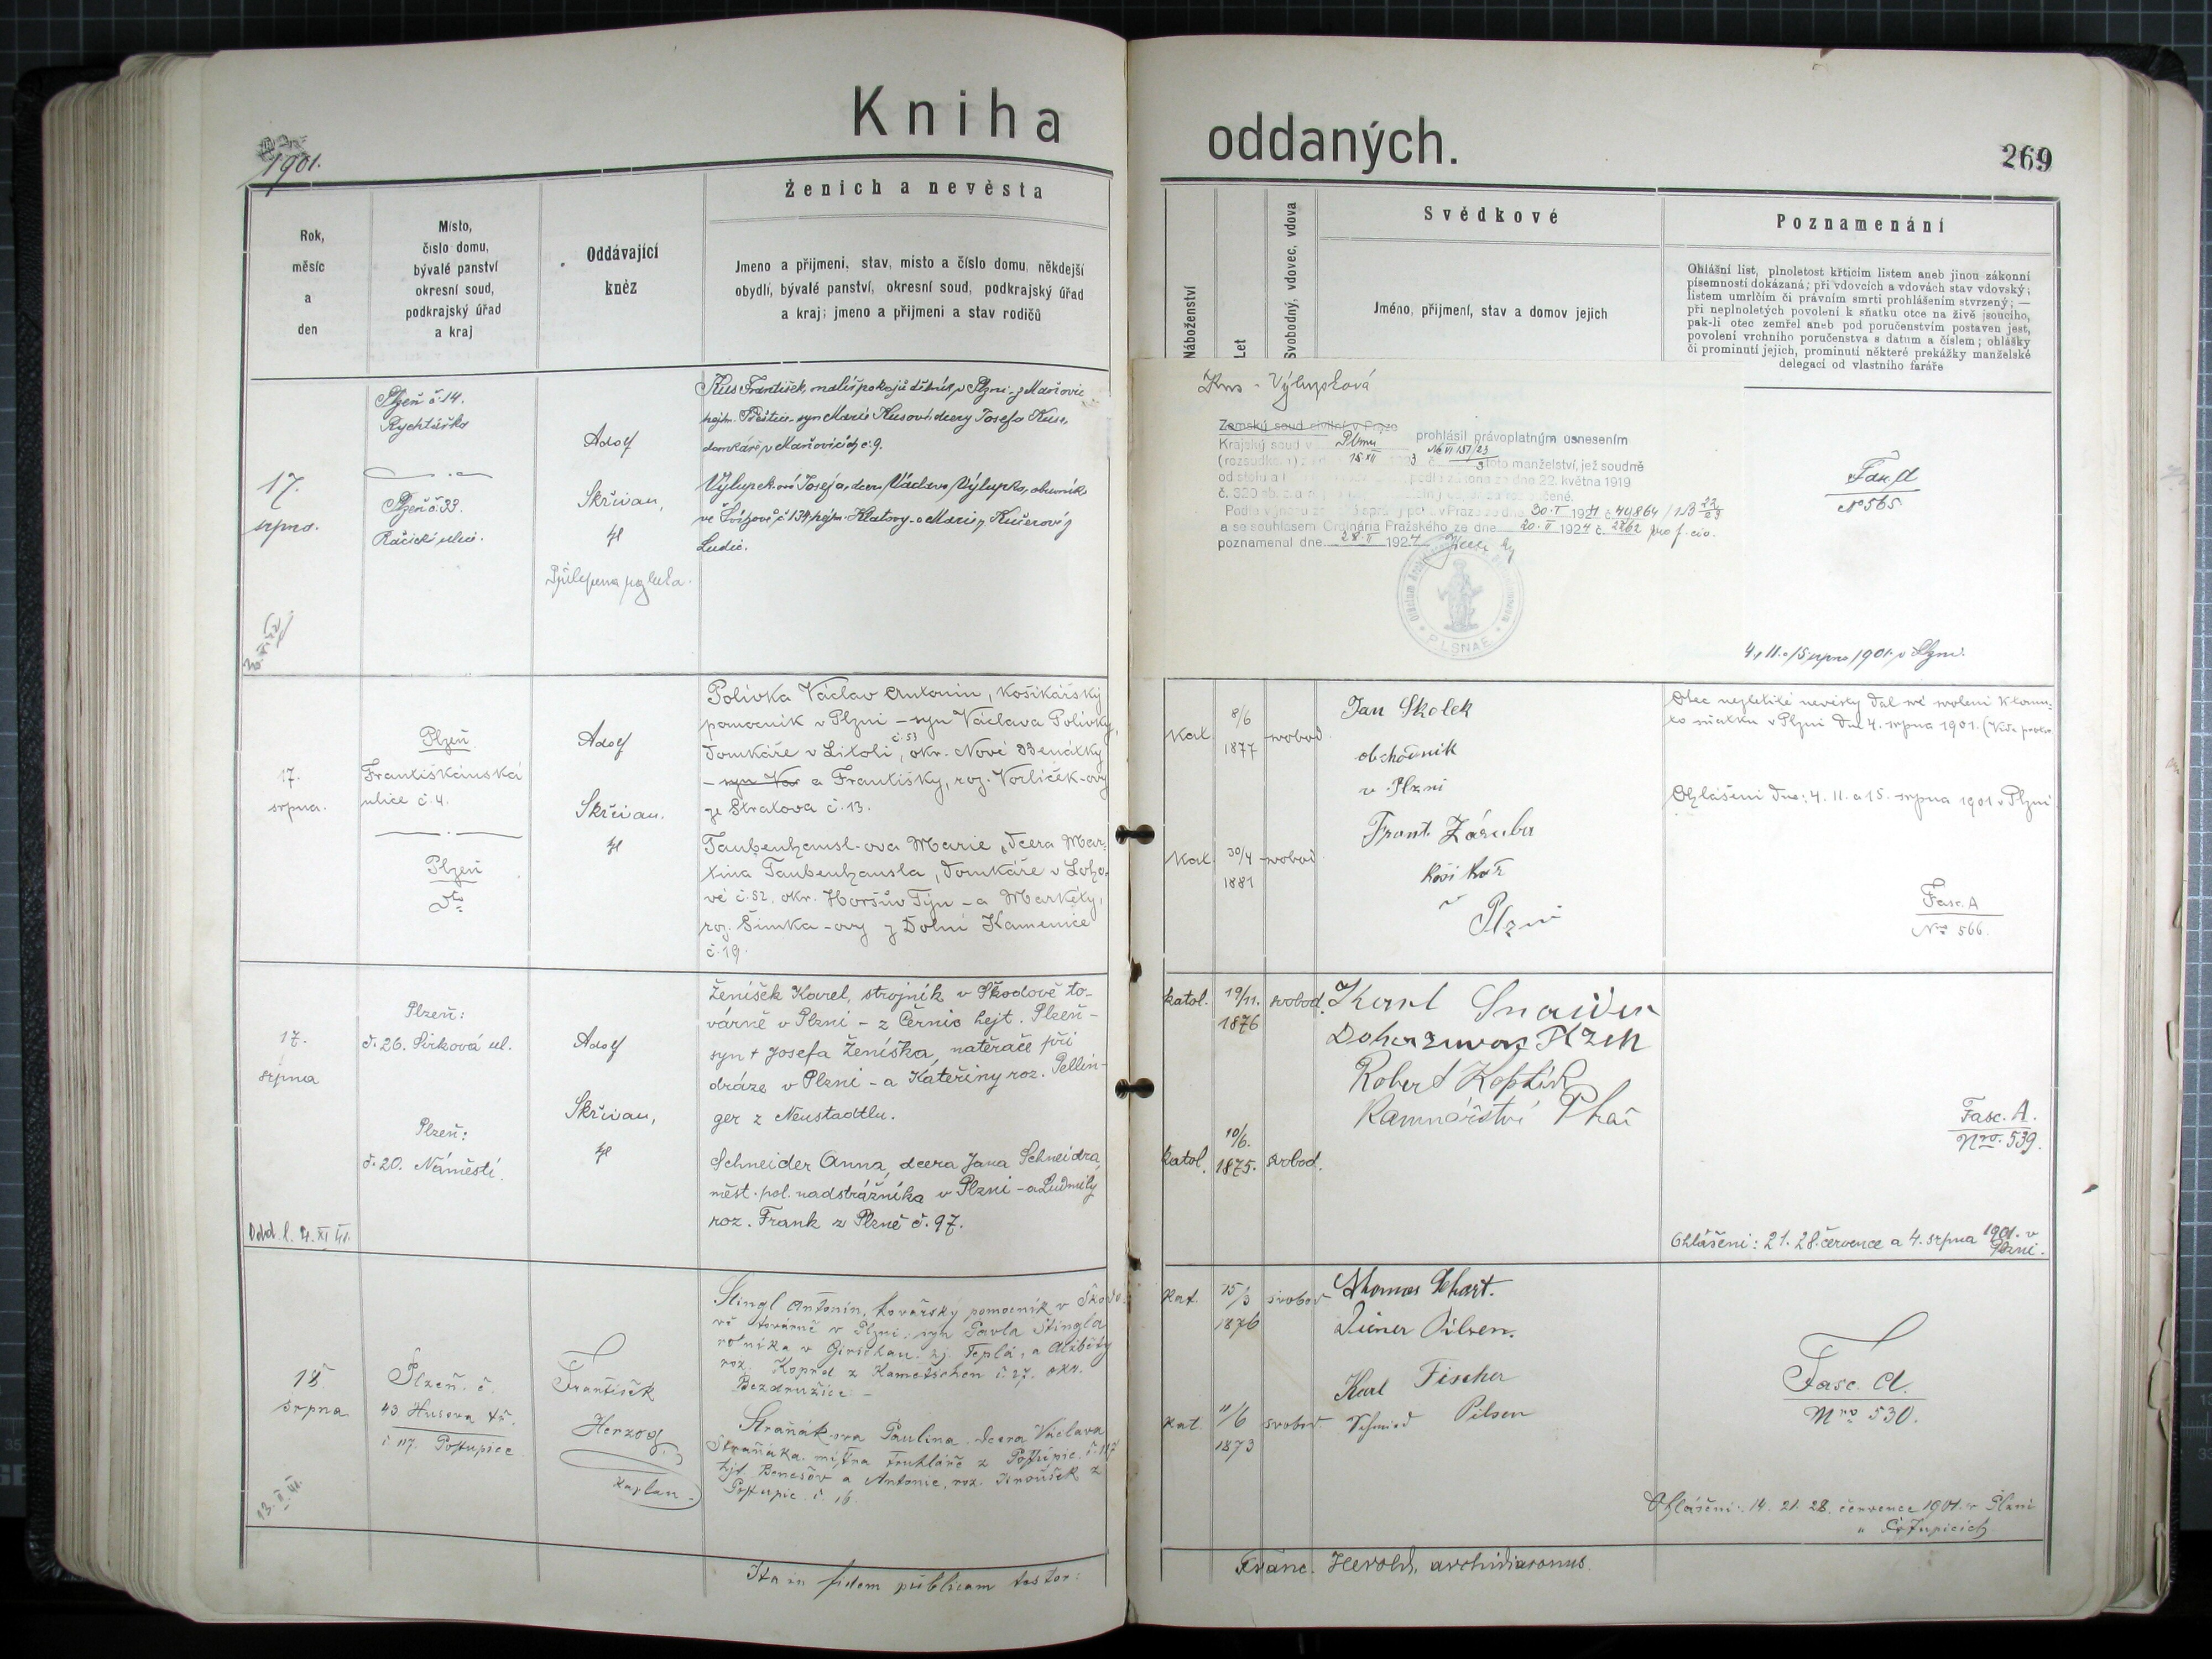 Kniha
oddaných.
1901.
269
Rok,
měsíc
a
den
Místo,
číslo domu,
bývalé panství
okresní soud,
podkrajský úřad
a kraj
Oddávající
kněz
Ženich a nevěsta
Jmeno a přijmeni, stav, misto a číslo domu, někdejší
obydlí, bývalé panství, okresní soud, podkrajský úřad
a kraj; jmeno a přijmeni a stav rodičů
Náboženství
Let
Svobodný, vdovec, vdova
Svědkové
Jméno, přijmení, stav a domov jejich
Poznamenání
Ohlášní list, plnoletost křticím listem aneb jinou zákonní
písemností dokázaná; při vdovcích a vdovách stav vdovský;
listem umrlčím či právním smrti prohlášením stvrzený; —
při neplnoletých povolení k sňatku otce na živě jsoucího,
pak-li otec zemřel aneb pod poručenstvím postaven jest,
povolení vrchního poručenstva s datum a číslem; ohlášky
či prominutí jejich, prominutí některé prekážky manželské
delegací od vlastního faráře
17.
srpna.
Plzeň č. 14.
Rychtářka
Plzeň č. 33.
Račická ulice.
Adolf
Skřivan,
Kus František, malíř pokojů dělník v Plzni - z Maňovic
hejtm. Přeštice - syn Marie Kusové dcery Josefa Kusa,
domkáře v Maňovicích č. 9.
Výlupek-ová Josefa, dcera Václava Výlupka, obuvníka
ve Švihově č 134 hejtm. Klatovy - a Marie, Kučerové z
Ludic.
Kus - Výlupková
Zemský soud civilní v Praze
Krajský soud v Plzni prohlásil právoplatným usnesením
toto manželství, jež soudně
zákona ze dne 22. května 1919
30.I 1924 č. 40,864
a se souhlasem Ordinária Pražského ze dne 20.II 1924 č. 2262 pro f. civ.
poznamenal dne 28.II 1924
PLSNAE
Fas. A
No 565.
4, 11. a 15 srpna 1901. v Plzni.
17.
srpna.
Plzeň
Františkánská
ulice č. 4.
Plzeň
dto
Adolf
Skřivan.
Polívka Václav Antonín, košíkářský
pomocník v Plzni - syn Václava Polívky,
domkáře v Litoli, č. 53 okr. Nové Benátky
- syn Vác a Františky, roz. Vorlíček-ovy
ze Stratova č. 13.
Taubenhansl-ova Marie, dcera Mar-
tina Taubenhansla, domkáře v Loho-
vé č. 52, okr. Horšův Týn - a Markéty,
roz. Šimka-ovy z Dolní Kamenice
č. 19.
Kat.
8/6
1877
svobod.
Kat.
30/4
1881
svobod
Jan Skolek
obchodník
v Plzni
Frant. Záruba
košíkář
v Plzni
Otec nezletilé nevěsty dal své svolení k tomu-
to sňatku v Plzni dne 4. srpna 1901.
Ohlášeni dne: 4. 11. a 15. srpna 1901 v Plzni
Fasc. A
Nro 566.
17.
srpna
Plzeň:
č. 26. Sirková ul.
Plzeň:
č. 20. Náměstí.
Adolf
Skřivan,
Ženíšek Karel, strojník v Škodově to-
várně v Plzni - z Černic hejt. Plzeň -
syn + Josefa Ženíška, natěrače při
dráze v Plzni - a Kateřiny roz. Pellin-
ger z Neustadtlu.
Schneider Anna, dcera Jana Schneidra,
měst. pol. nadstrážníka v Plzni - a Ludmily
roz. Frank z Plzně č. 97.
katol.
19/11.
1876
svobod.
katol.
10/6.
1875.
svobod.
Robert Koptík
Kamnářství
Fasc. A.
Nro. 539.
Ohlášeni: 21. 28. července a 4. srpna 1901. v
Plzni.
18.
srpna
Plzeň. č.
43 Husova tř.
č 117. Postupice
František
Herzog,
kaplan.
Stingl Antonín, kovářský pomocník v Škodo-
vě továrně v Plzni, syn Pavla Stingla
rolníka v Girschau. hj. Teplá, a Alžběty
roz. Koprd z Kametschen č. 27. okr.
Bezdružice -
Straňák-ova Paulina, dcera Václava
Straňáka, mistra truhláře z Postupic. č. 117
hjt. Benešov a Antonie, roz. Kroušek z
Postupic. č. 16.
Kat.
15/3
1876
svobod
Kat.
11/6
1873
svobod
Thomas Schart.
Diener Pilsen.
Karl Fischer
Schmied Pilsen
Fasc. A.
Nro 530.
Ohlášeni: 14. 21. 28. července 1901. v Plzni
" Postupicích
Ita in fidem publicam testor:
Franc. Herold, archidiaconus.